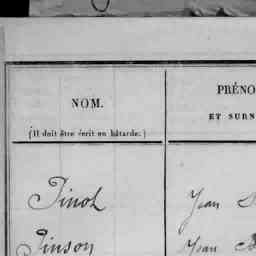 NOM.
(Il doit être écrit en bâtarde.)
PRÉNO
ET SURN
Pinol
Jean
Pinson
Jean